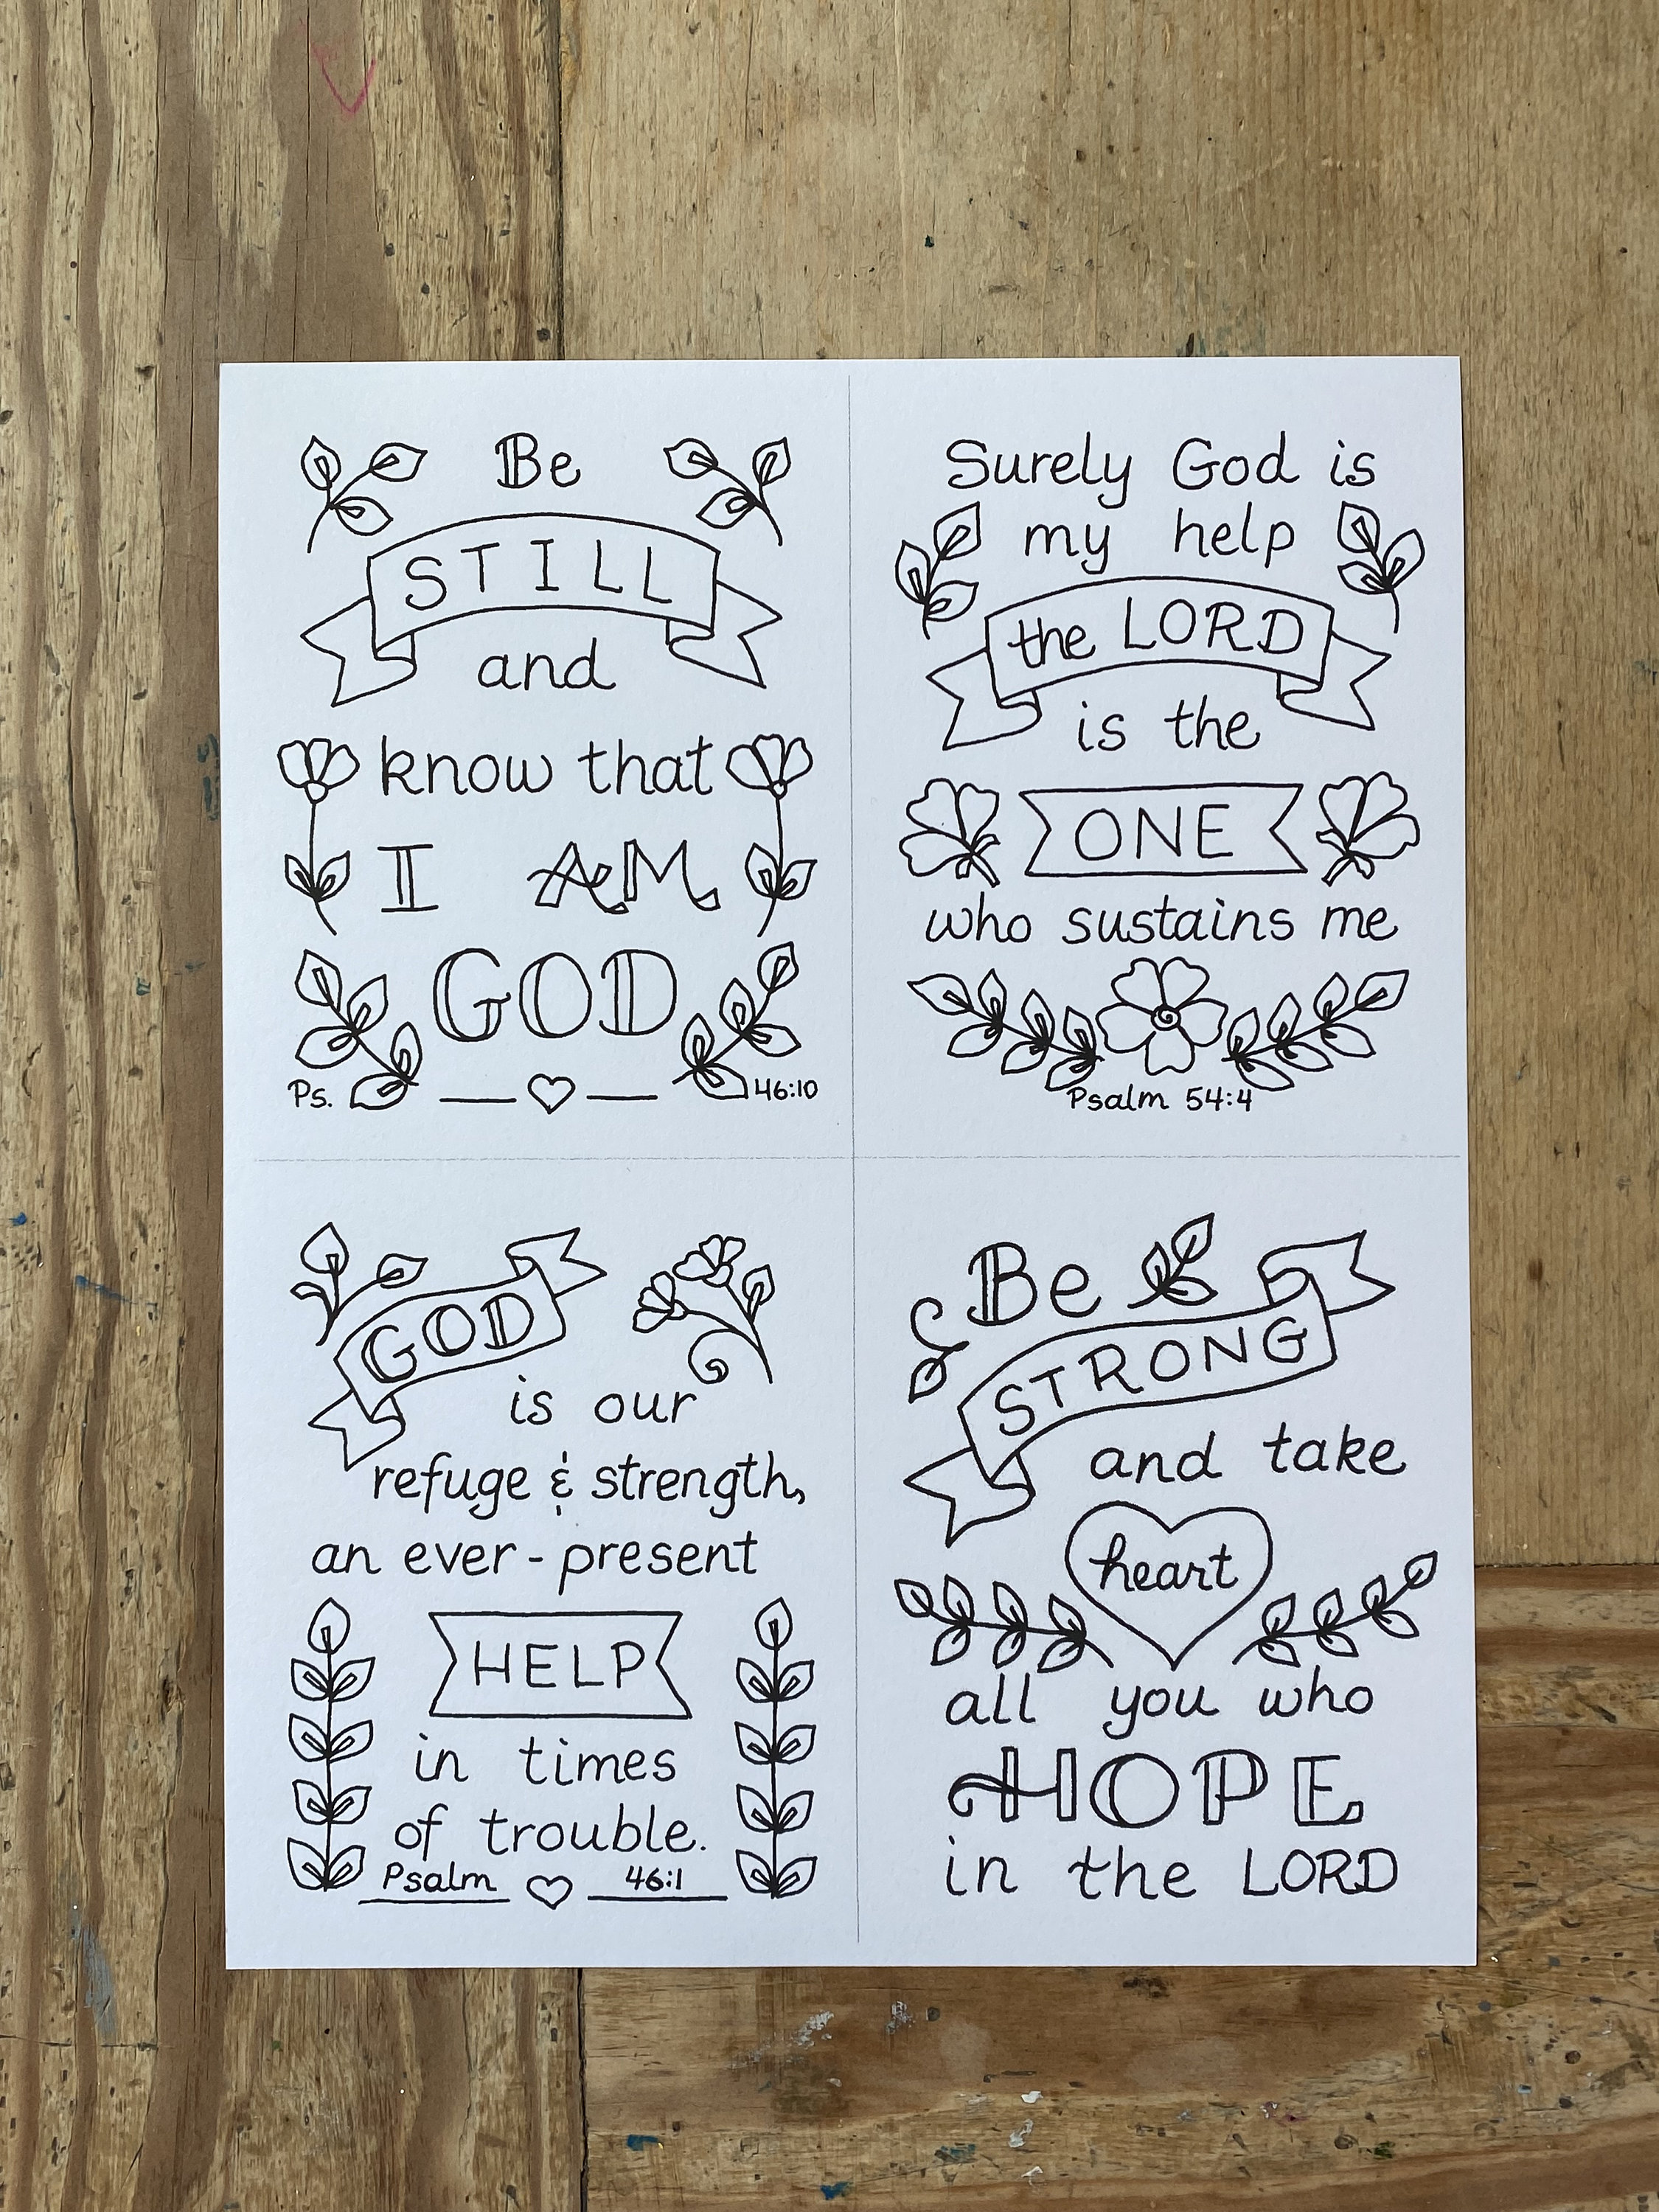 Be
STILL
and
know that
I AM
GOD
Ps. 46:10
Surely God is
my help
the LORD
is the
ONE
who sustains me
Psalm 54:4
GOD
is our
refuge & strength,
an ever-present
HELP
in times
of trouble.
Psalm 46:1
Be
STRONG
and take
heart
all you who
HOPE
in the LORD